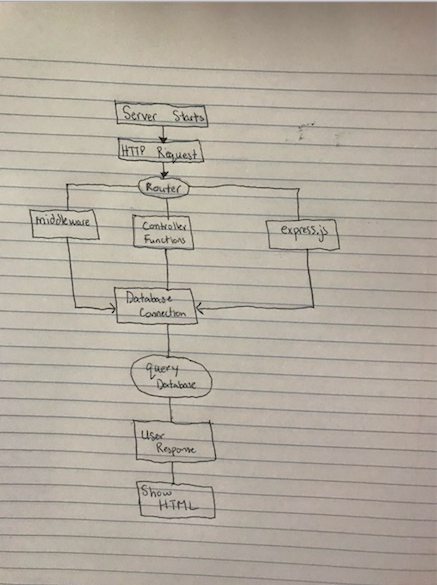 Server Starts
HTTP Request
Router
middleware
Controller
Functions
express.js
Database
Connection
query
Database
User
Response
Show
HTML